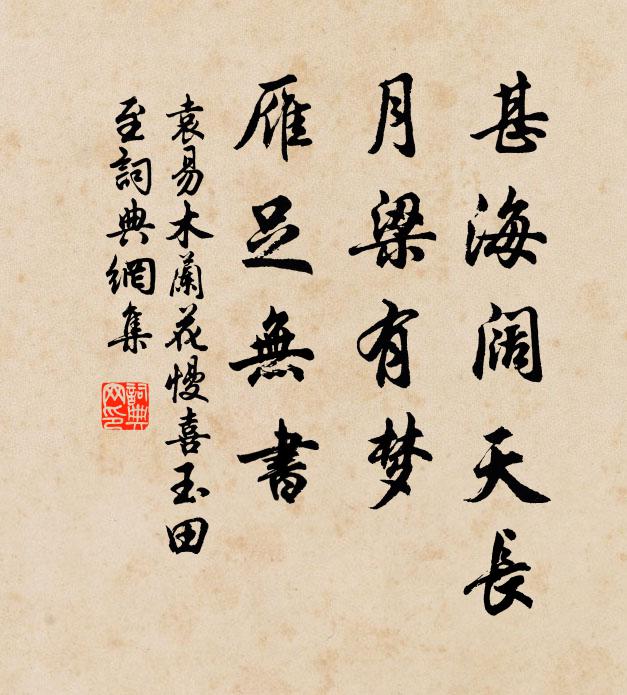 甚海阔天長
月梁有梦
雁足無書
袁易木蘭花慢喜玉田
至詞典網集
詞典
网印